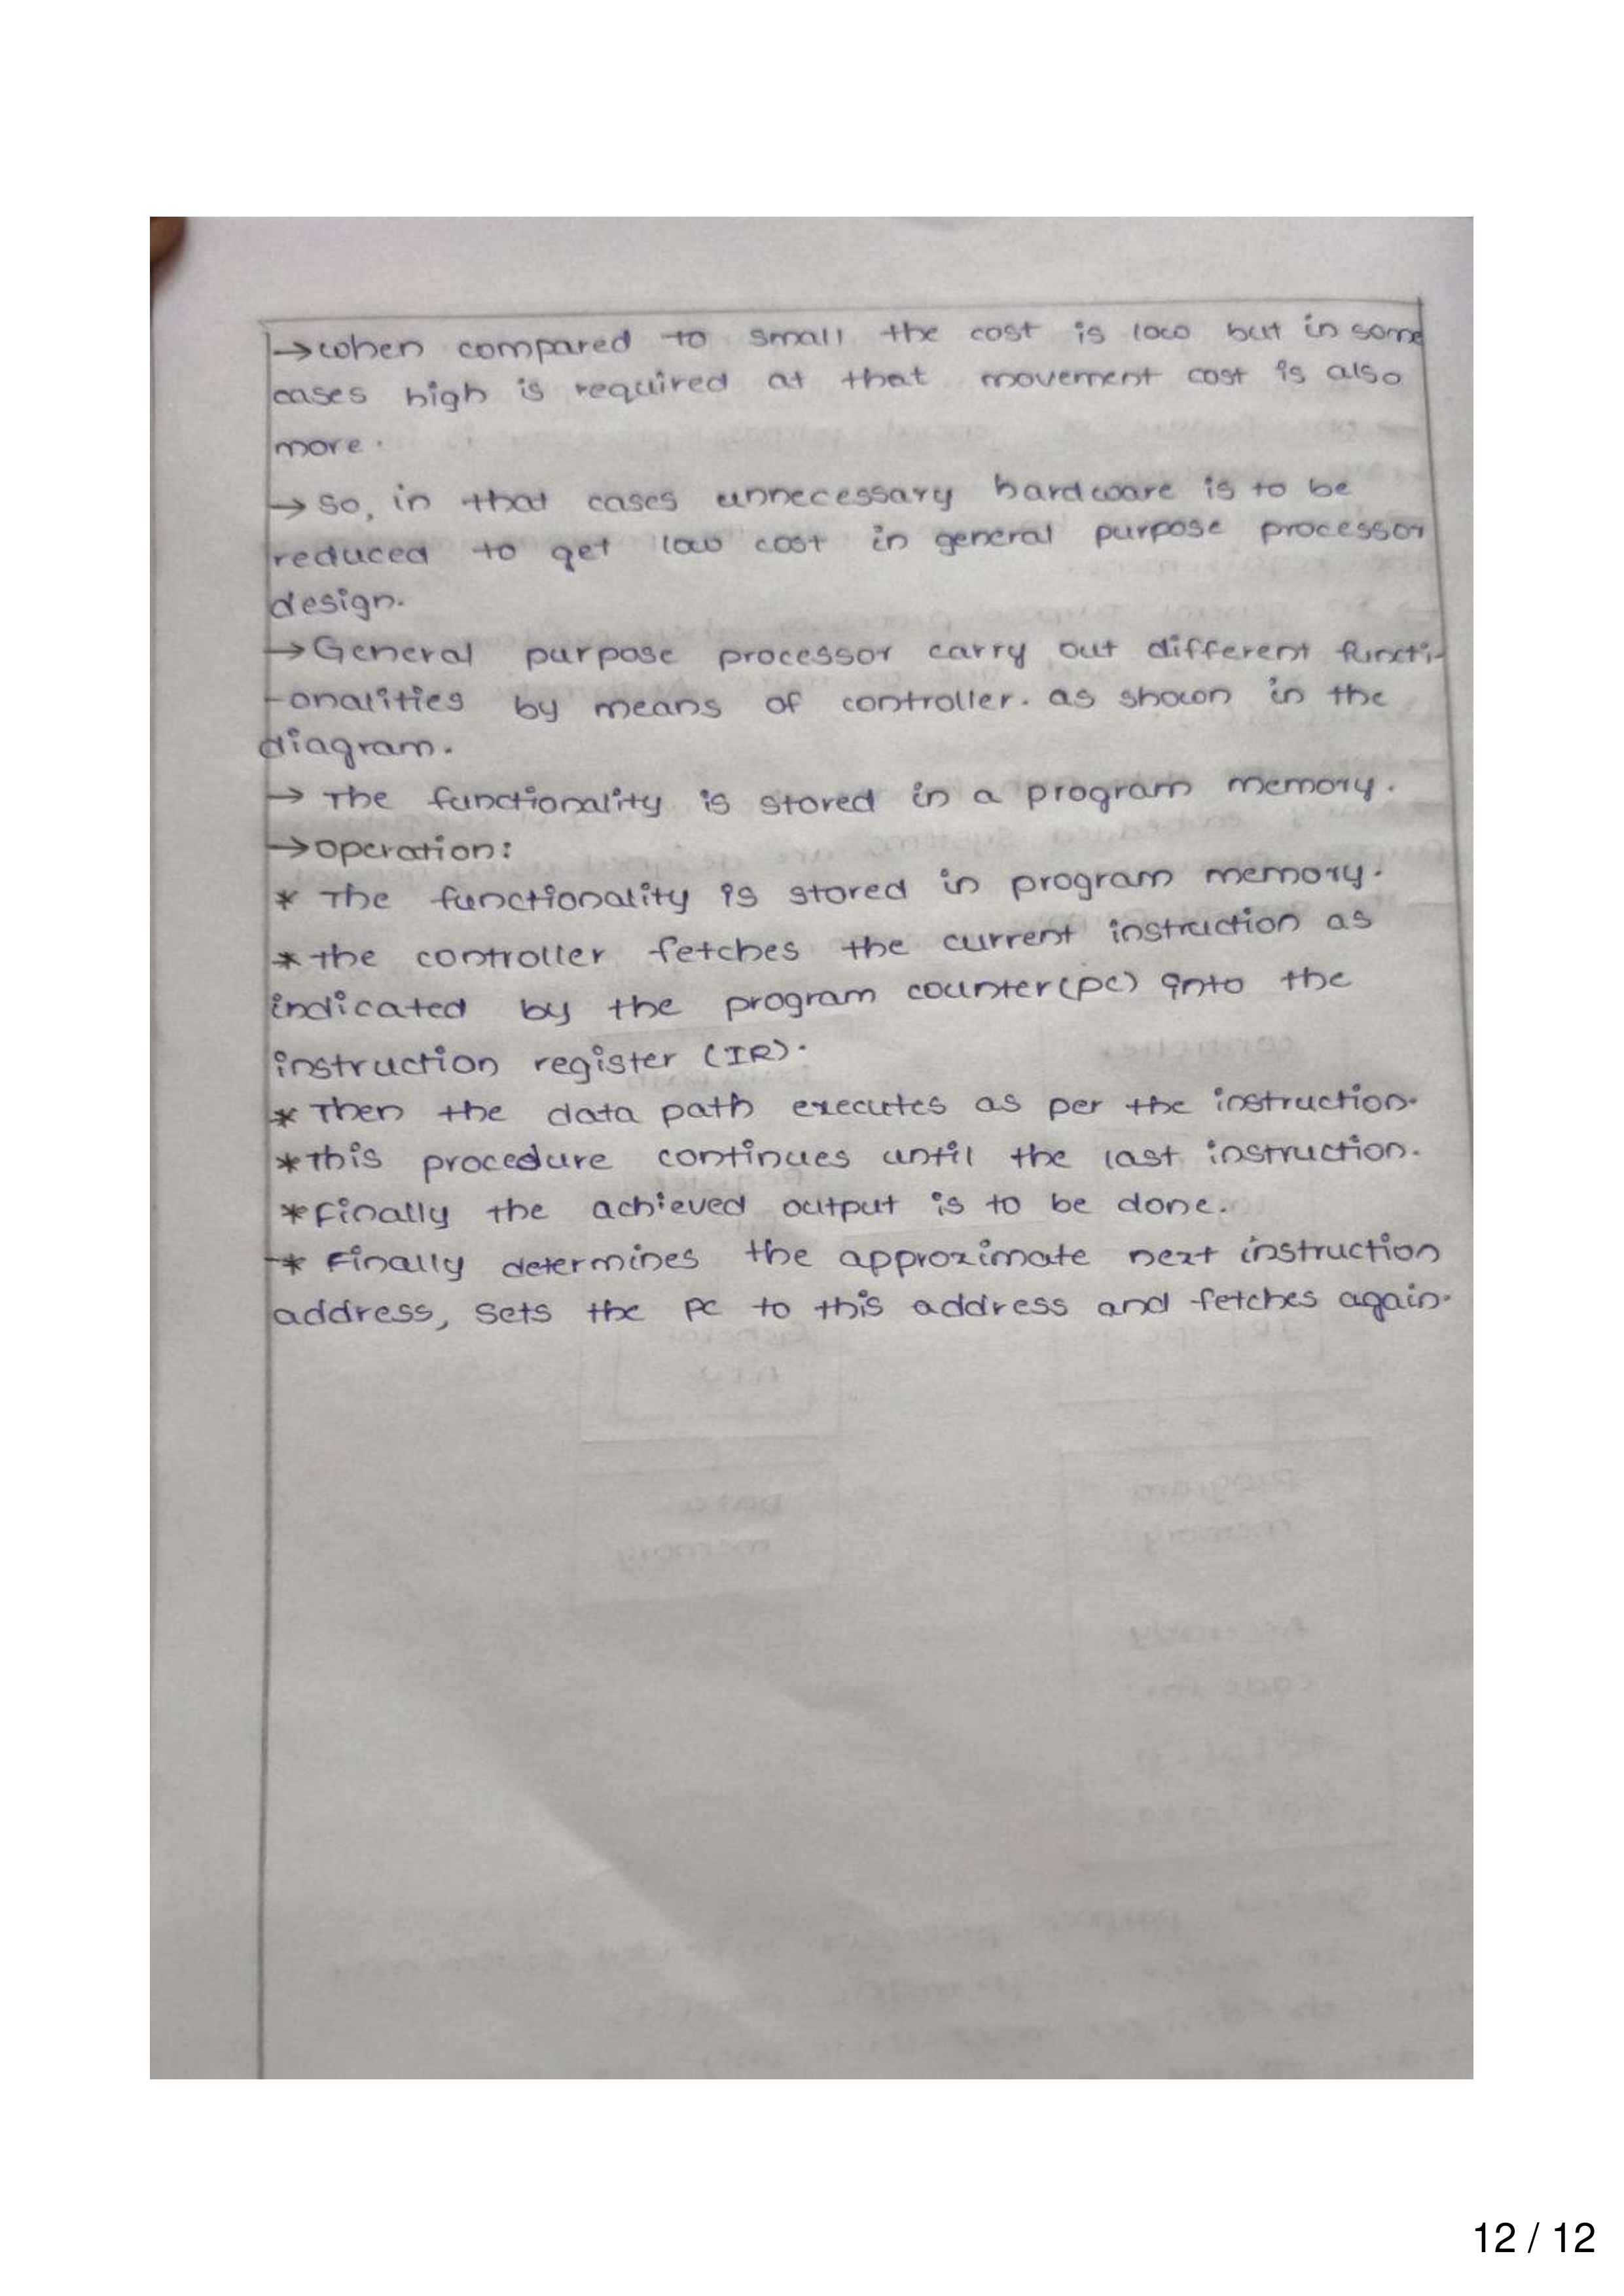 →when compared to small the cost is low but in some
cases high is required at that movement cost is also
more.
→ So, in that cases unnecessary hardware is to be
reduced to get low cost in general purpose processor
design.
→General purpose processor carry out different functi-
-onalities by means of controller. as shown in the
diagram.
→ The functionality is stored in a program memory.
→operation:
* The functionality is stored in program memory.
* the controller fetches the current instruction as
indicated by the program counter(pc) into the
instruction register (IR).
* Then the data path executes as per the instruction.
*This procedure continues until the last instruction.
*Finally the achieved output is to be done.
* Finally determines the approximate next instruction
address, sets the PC to this address and fetches again.
12 / 12